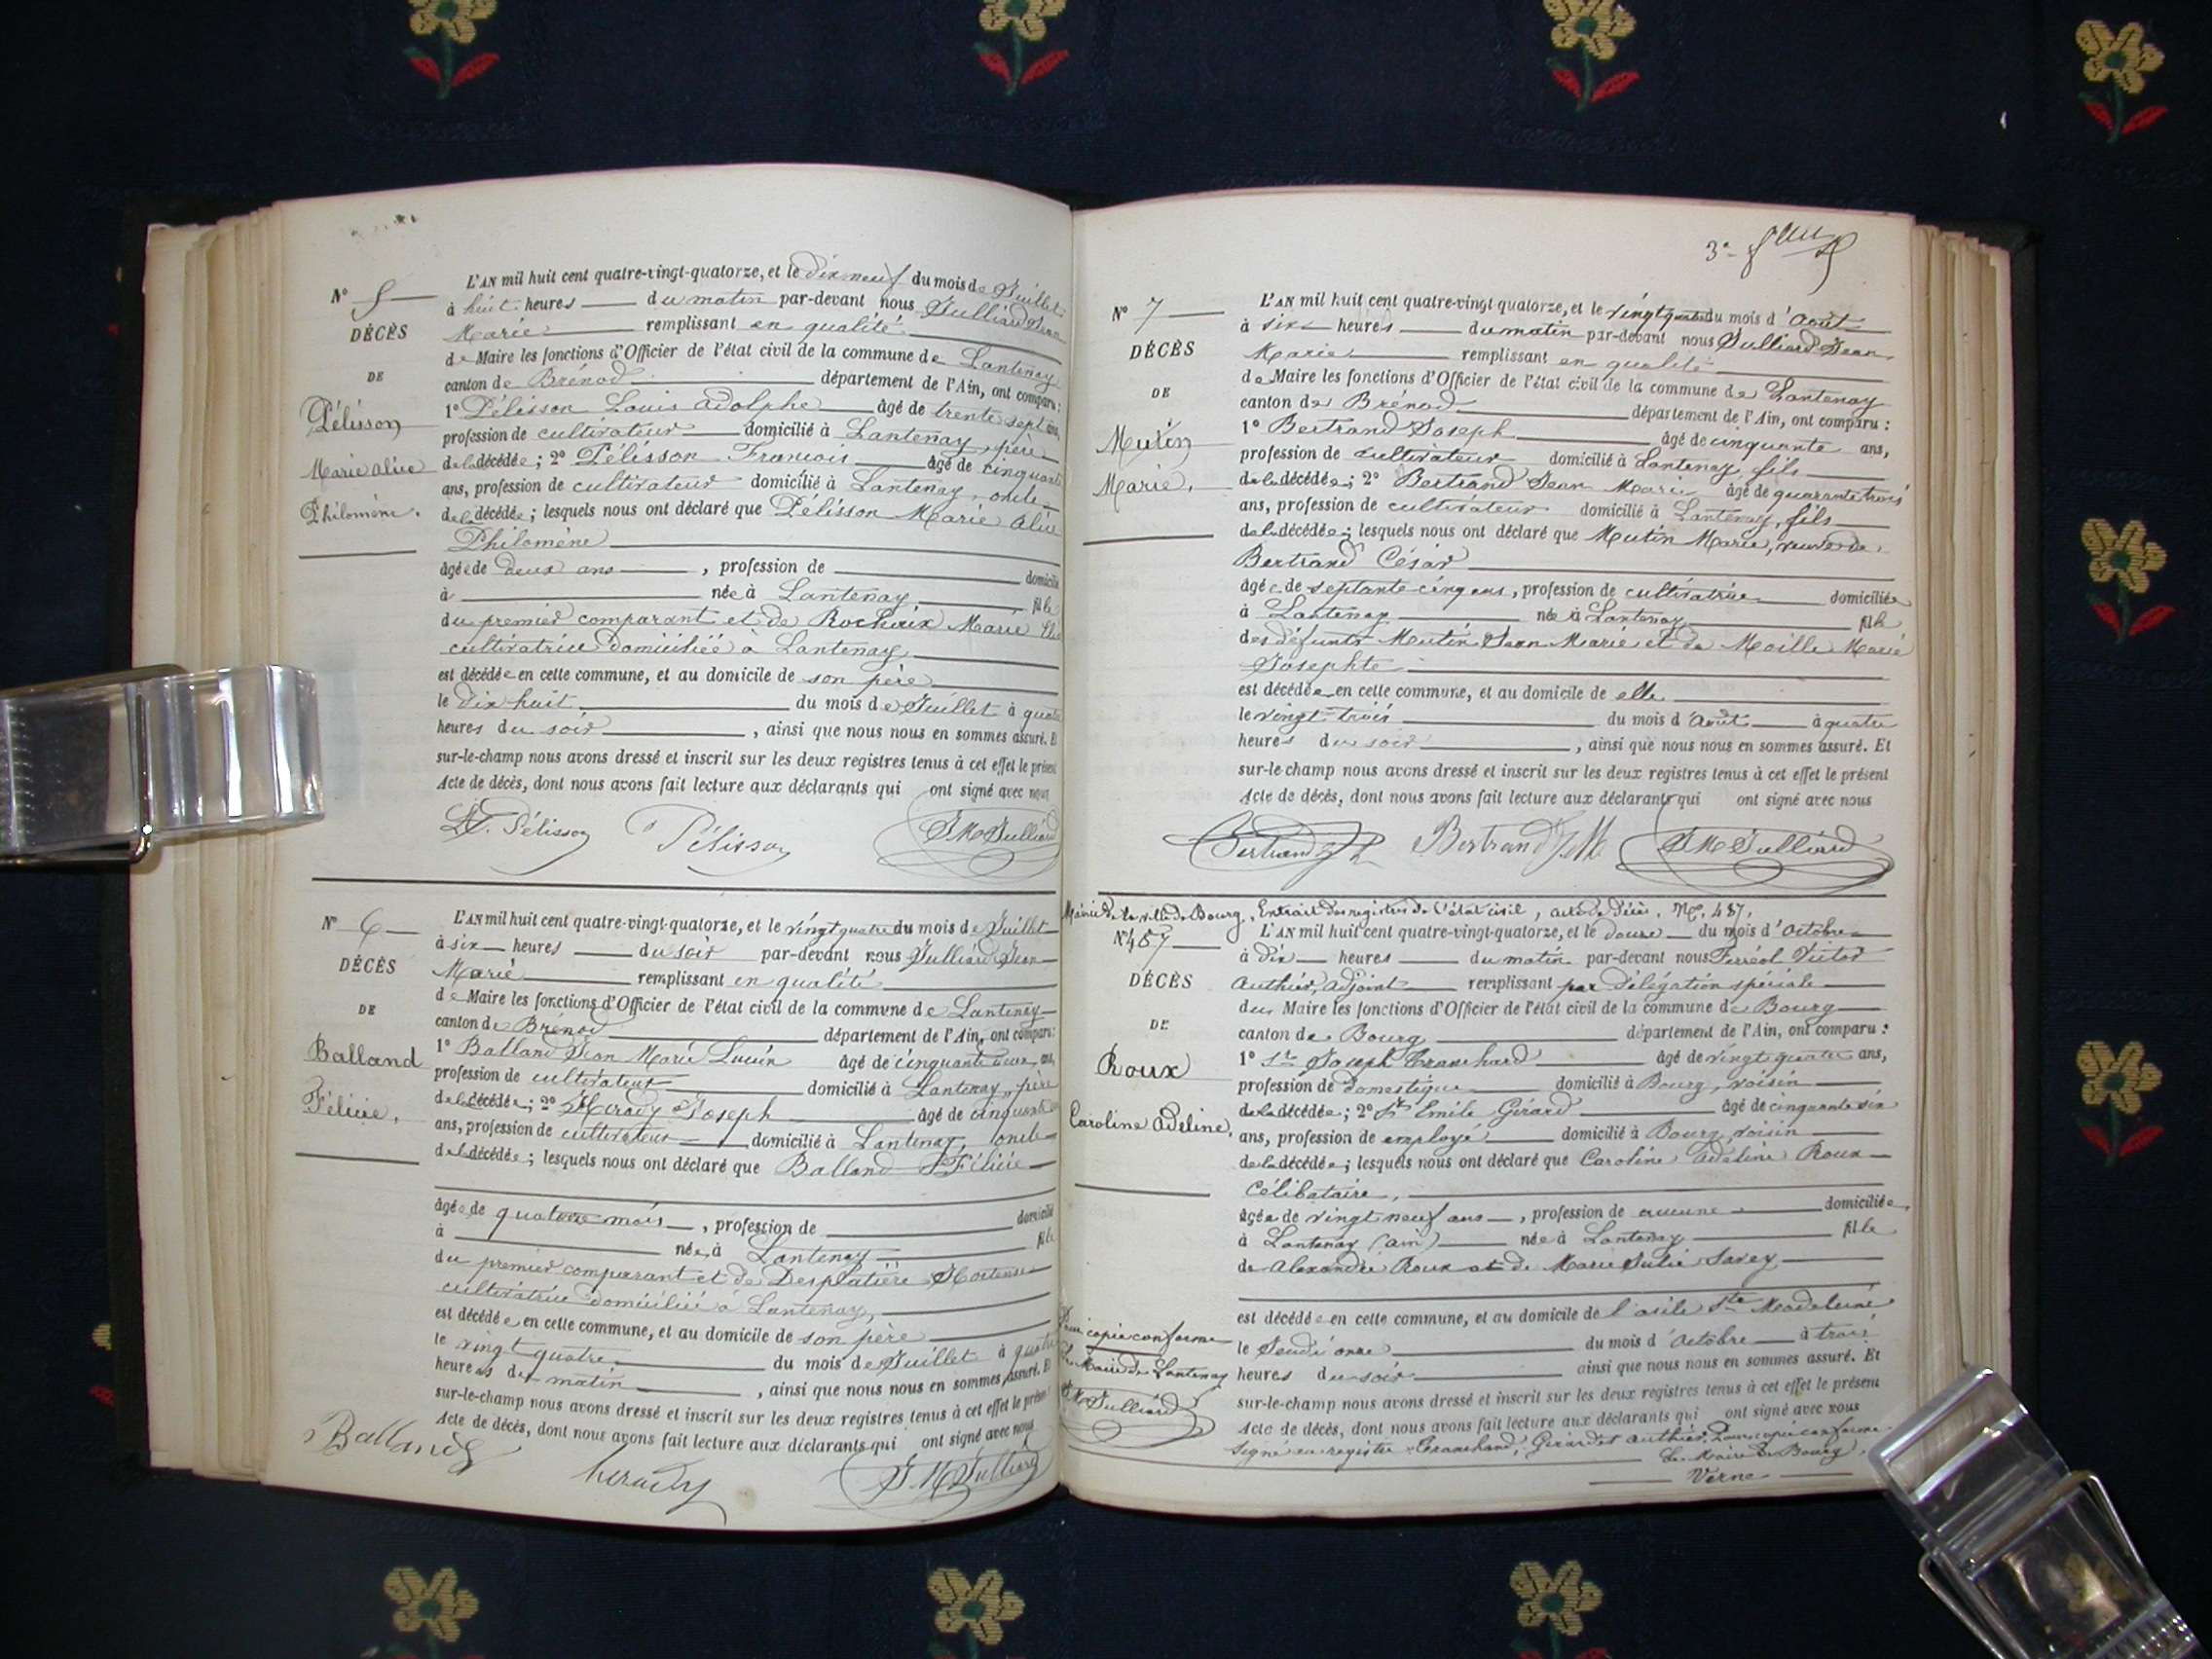 N° 5
DÉCÈS
DE
Pélisson
Marie Alice
Philomène.
L'AN mil huit cent quatre-vingt-quatorze, et le dix neuf du mois de Juillet
à huit heures du matin par-devant nous Julliard Jean
Marie remplissant en qualité
de Maire les fonctions d'Officier de l'état civil de la commune de Lantenay
canton de Brénod département de l'Ain, ont comparu :
1° Pélisson Louis Adolphe âgé de trente sept ans,
profession de cultivateur domicilié à Lantenay, père
de la décédée ; 2° Pélisson François âgé de cinquante
ans, profession de cultivateur domicilié à Lantenay, oncle
de la décédée ; lesquels nous ont déclaré que Pélisson Marie Alice
Philomène
âgée de deux ans , profession de domicilié
à née à Lantenay fille
du premier comparant et de Rochaix Marie
cultivatrice domiciliée à Lantenay
est décédée en cette commune, et au domicile de son père
le dix huit du mois de Juillet à quatre
heures du soir , ainsi que nous nous en sommes assuré. Et
sur-le-champ nous avons dressé et inscrit sur les deux registres tenus à cet effet le présent
Acte de décès, dont nous avons fait lecture aux déclarants qui ont signé avec nous
Pélisson Pélisson J M Julliard
N° 6
DÉCÈS
DE
Balland
Félicie,
L'AN mil huit cent quatre-vingt-quatorze, et le vingt quatre du mois de Juillet
à six heures du soir par-devant nous Julliard Jean
Marie remplissant en qualité
de Maire les fonctions d'Officier de l'état civil de la commune de Lantenay
canton de Brénod département de l'Ain, ont comparu :
1° Balland Jean Marie Lucien âgé de cinquante deux ans,
profession de cultivateur domicilié à Lantenay, père
de la décédée ; 2° Héraudy Joseph âgé de cinquante
ans, profession de cultivateur domicilié à Lantenay, oncle
de la décédée ; lesquels nous ont déclaré que Balland Félicie
âgée de quatorze mois , profession de domicilié
à née à Lantenay fille
du premier comparant et de Desplatière Hortense
cultivatrice domiciliée à Lantenay,
est décédée en cette commune, et au domicile de son père
le vingt quatre du mois de Juillet à quatre
heures du matin , ainsi que nous nous en sommes assuré. Et
sur-le-champ nous avons dressé et inscrit sur les deux registres tenus à cet effet le présent
Acte de décès, dont nous avons fait lecture aux déclarants qui ont signé avec nous
Balland J. M Julliard
N° 7
DÉCÈS
DE
Mutin
Marie,
L'AN mil huit cent quatre-vingt quatorze, et le vingt quatre du mois d'Août
à six heures du matin par-devant nous Julliard Jean
Marie remplissant en qualité
de Maire les fonctions d'Officier de l'état civil de la commune de Lantenay
canton de Brénod département de l'Ain, ont comparu :
1° Bertrand Joseph âgé de cinquante ans,
profession de cultivateur domicilié à Lantenay, fils
de la décédée ; 2° Bertrand Jean Marie âgé de quarante trois
ans, profession de cultivateur domicilié à Lantenay, fils
de la décédée ; lesquels nous ont déclaré que Mutin Marie, veuve de
Bertrand César
âgée de septante cinq ans, profession de cultivatrice domiciliée
à Lantenay née à Lantenay fille
des défunts Mutin Jean Marie et de Moille Marie
Josephte
est décédée en cette commune, et au domicile de elle
le vingt-trois du mois d'Août à quatre
heures du soir , ainsi que nous nous en sommes assuré. Et
sur-le-champ nous avons dressé et inscrit sur les deux registres tenus à cet effet le présent
Acte de décès, dont nous avons fait lecture aux déclarants qui ont signé avec nous
Bertrand Bertrand J M J M Julliard
Mairie de la ville de Bourg, Extrait des registres de l'état civil, acte de décès. N°. 487.
N° 487
DÉCÈS
DE
Roux
Caroline Adeline,
L'AN mil huit cent quatre-vingt-quatorze, et le douze du mois d'Octobre
à dix heures du matin par-devant nous Ferréol Victor
Authier, adjoint remplissant par délégation spéciale
du Maire les fonctions d'Officier de l'état civil de la commune de Bourg
canton de Bourg département de l'Ain, ont comparu :
1° Sr Joseph Tranchard âgé de vingt quatre ans,
profession de domestique domicilié à Bourg, voisin
de la décédée ; 2° Sr Emile Girard âgé de cinquante six
ans, profession de employé domicilié à Bourg, voisin
de la décédée ; lesquels nous ont déclaré que Caroline Adeline Roux
célibataire,
âgée de vingt neuf ans , profession de aucune domiciliée
à Lantenay (Ain) née à Lantenay fille
de Alexandre Roux et de Marie Julie Savey
est décédée en cette commune, et au domicile de l'asile Ste Madeleine
le Jeudi onze du mois d'Octobre à trois
heures du soir ainsi que nous nous en sommes assuré. Et
sur-le-champ nous avons dressé et inscrit sur les deux registres tenus à cet effet le présent
Acte de décès, dont nous avons fait lecture aux déclarants qui ont signé avec nous
Signé au registre Tranchard, Girard et Authier. Pour copie conforme
Le Maire de Bourg,
Verne
Pour copie conforme
Le Maire de Lantenay
J M Julliard